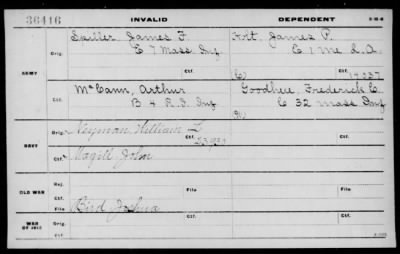 36416 INVALID DEPENDENT
Spiller, James F. Holt, James P.
Orig. E 7 Mass Inf E 1 Me L.A.
ARMY 19237
McCann, Arthur Goodhue, Frederick E.
Ctf. B 4 R.I. Inf E 32 Mass Inf
Orig. Neyman, William L.
NAVY
Ctf. Magill, John
Rej.
OLD WAR Ctf. File File
File Bird Joshua
WAR OF 1812 Orig. Ctf. Ctf.